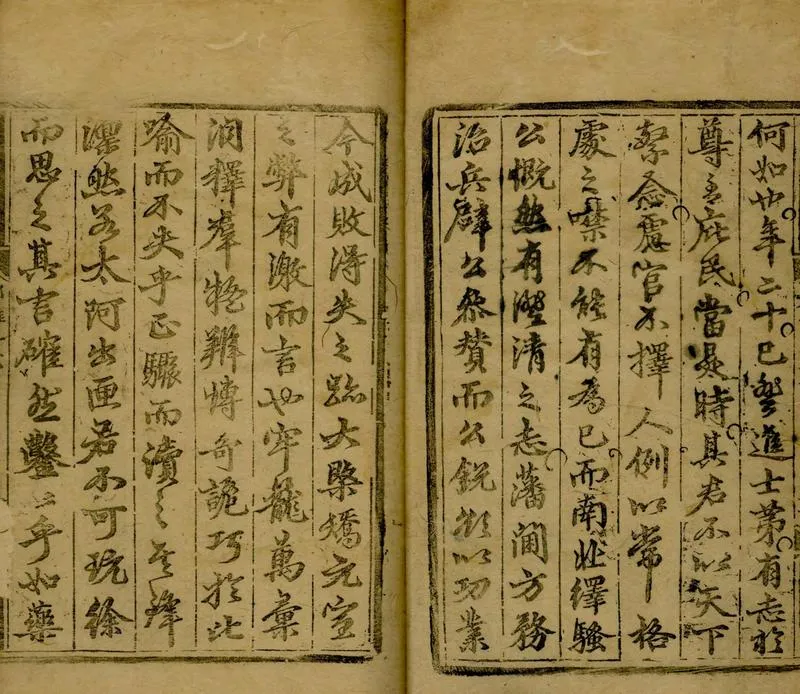 何如也年二十已登進士第有志於
尊主庇民當是時其君不以天下
繫念慮官不擇人例以常格
處之噤不能有為已而南北繹騷
公慨然有澄清之志藩閫方務
治兵辟公參贊而公銳欲以功業
今成敗得失之跡大槩矯元室
之弊有激而言也牢籠萬彙
洞釋羣疑辯愽奇詭巧於比
喻而不失乎正驟而讀之其鋒
凜然若太阿出匣若不可玩徐
而思之其言確然鑿〻乎如藥